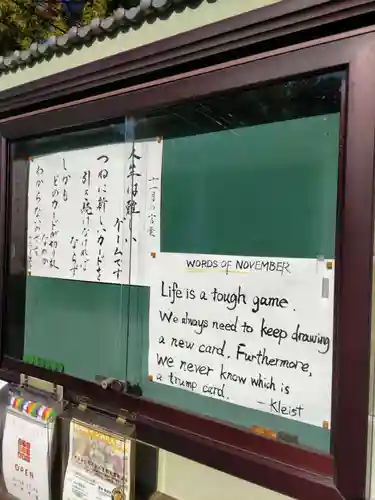 十一月の言葉
人生は難しい
ゲームです
つねに新しいカードを
引き続けなければ
ならず
しかも
どのカードが切り札
なのか
わからないのです
WORDS OF NOVEMBER
Life is a tough game.
We always need to keep drawing
a new card. Furthermore,
we never know which is
a trump card.
- Kleist
OPEN